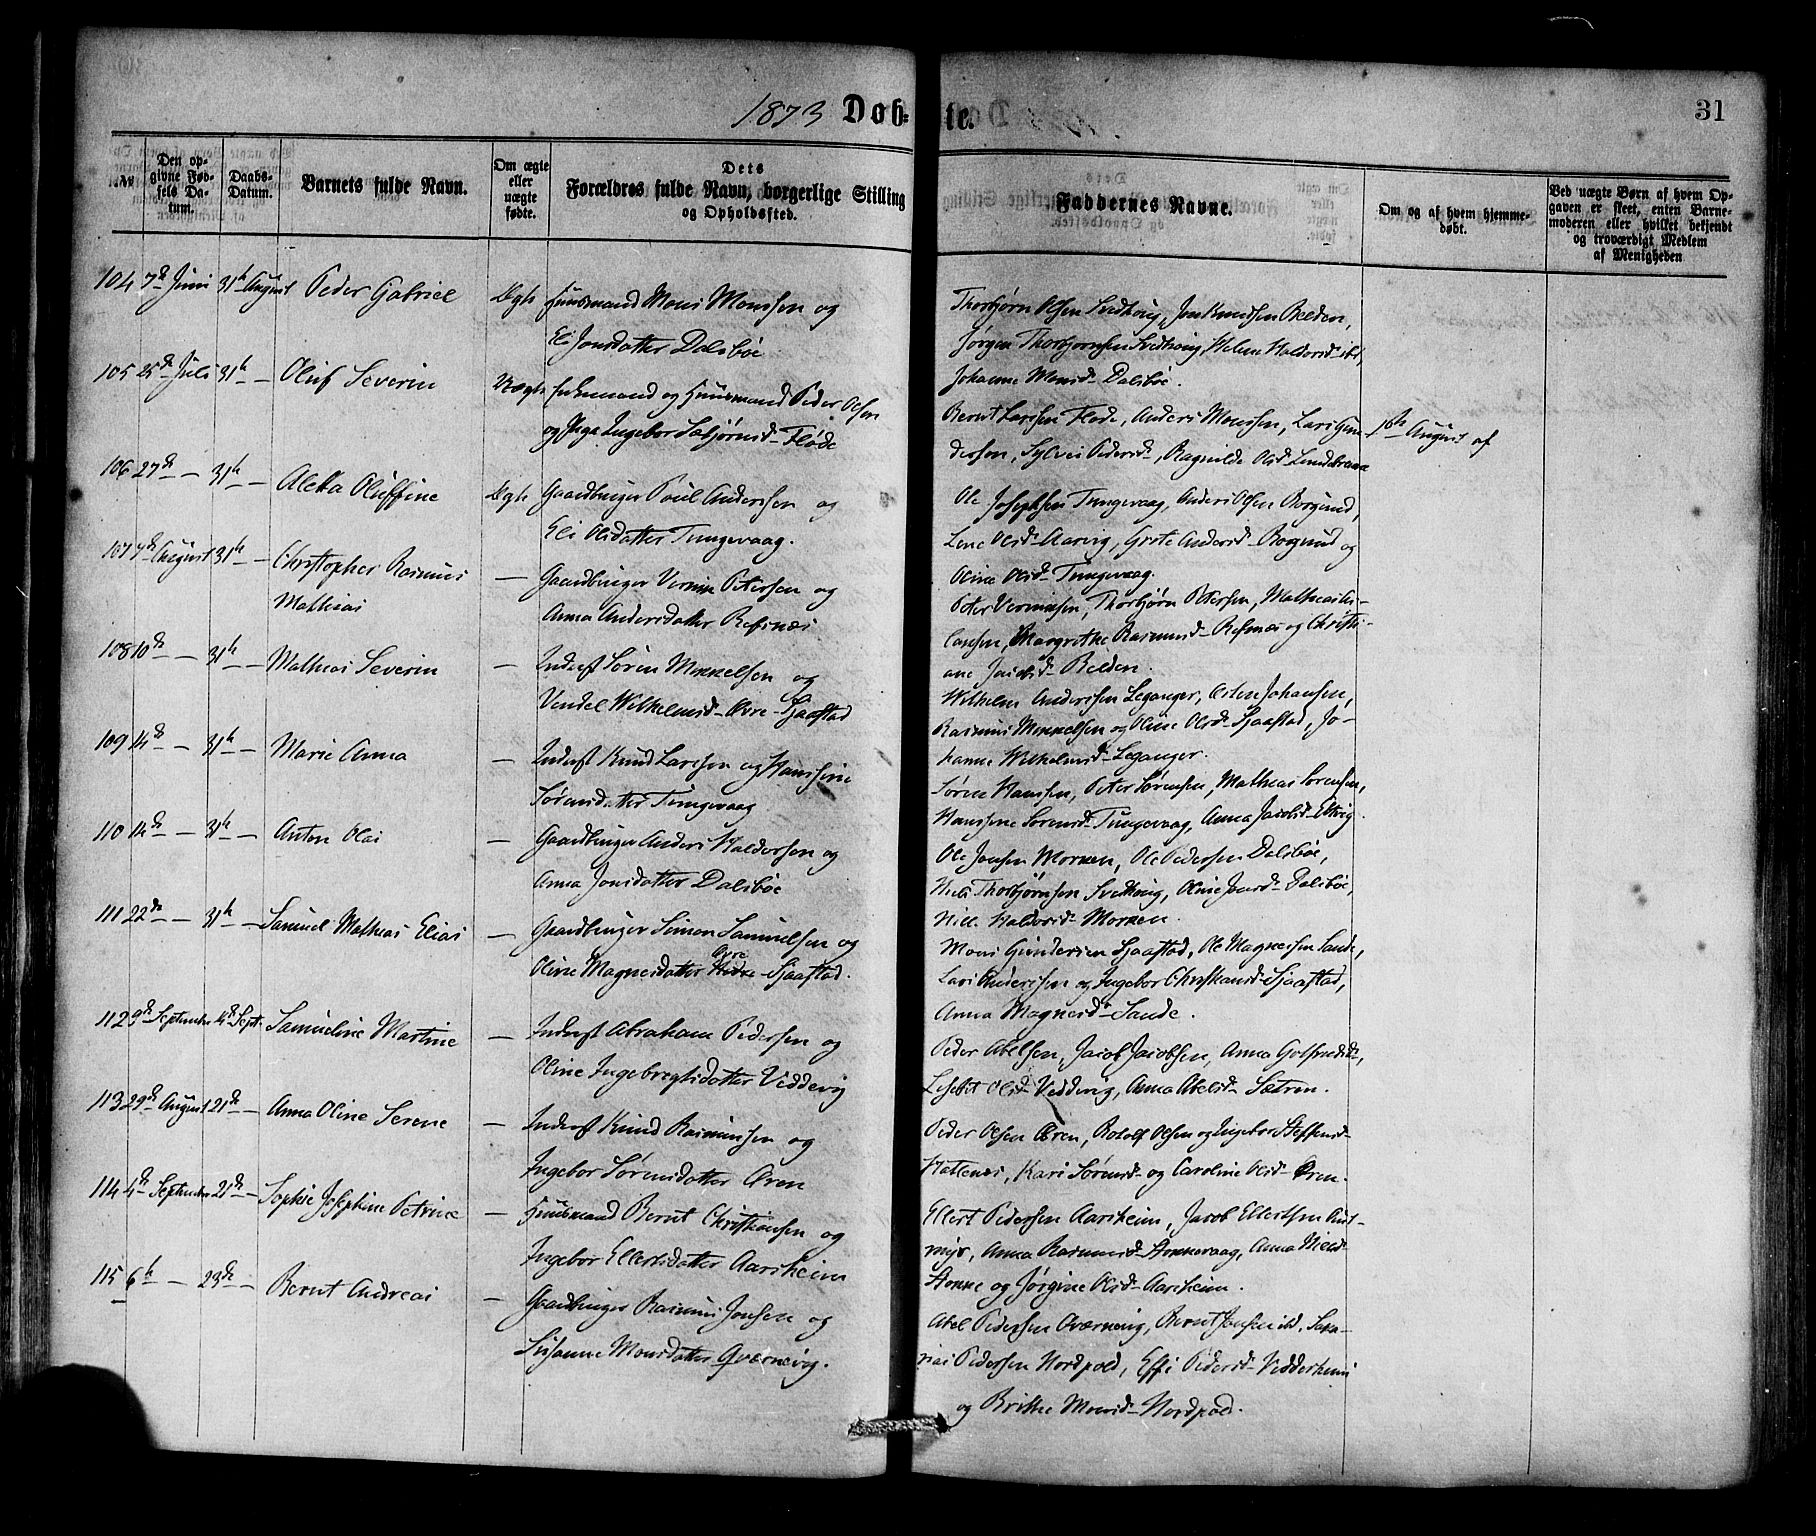 1873 Døb-
te.
31
№
Den op-
givne Fød-
sels Da-
tum.
Daabs-
Datum.
Barnets fulde Navn.
Om ægte
eller
uægte
fødte.
Dets
Forældres fulde Navn, borgerlige Stilling
og Opholdssted.
Faddernes Navne.
Om og af hvem hjemme-
døbt.
Ved uægte Børn af hvem Op-
gaven er skeet, enten Barne-
moderen eller hvilket bekjendt
og troværdigt Medlem
af Menigheden
104 7de Juni 31te August Peder Gabriel Ægte Huusmand Mons Monssen og
Eli Jonsdatter Dalsbøe
Thorbjørn Olsen Svidtoug, Jon Knudsen Belden,
Jørgen Thorbjørnsen Svidtoug, Helene Haldorsd- ibd,
Johanne Monsd- Dalsbøe.
105 25de Juli 31te — Oluf Severin Uægte Enkemand og Huusmand Peder Olsen
og Pige Ingebor Sebjørnsd- Fløde
Bernt Larssen Fløde, Anders Monssen, Lars Gun-
dersen, Sylvei Pedersd-, Ragnilde Olsd-
16de August af
106 27de — 31te — Alette Oluffine Ægte Gaardbruger Poul Anderssen og
Eli Olsdatter Tungevaag.
Ole Josephsen Tungevaag, Anders Olsen Borgund,
Lene Olsd- Aarvig, Grete Andersd- Borgund og
Oline Olsd- Tungevaag.
107 7de August 31te — Christopher Rasmus
Mathias
— Gaardbruger Vermun Petersen og
Anna Andersdatter Refsnæs
Peter Vermunsen, Thorbjørn Petersen, Mathias As-
lansen, Margrethe Rasmusd- Refsnæs og Christi-
ane Jacobsd- Belden.
108 10de — 31te — Mathias Severin — Inderst Søren Mikkelsen og
Vendel Wilhelmsd- Øvre-Sjaastad
Wilhelm Anderssen Leganger, Johansen,
Rasmus Mikkelsen og Oline Olsd- Sjaastad, Jo-
hanne Wilhelmsd- Leganger.
109 14de — 31te — Marie Anna — Inderst Knud Larssen og Hanssine
Sørensdatter Tungevaag
Søren Hanssen, Peter Sørensen, Mathias Sørensen,
Hanssine Sørensd- Tungevaag, Anna Jacobsd- Eltvig.
110 14de — 31te — Anton Olai — Gaardbruger Anders Haldorsen og
Anna Jonsdatter Dalsbøe
Ole Jonsen Morken, Ole Pedersen Dalsbøe,
Niels Thorbjørnsen Svidtoug, Oline Jonsd- Dalsbøe,
Haldorsd- Morken.
111 22de — 31te — Samuel Mathias Elias — Gaardbruger Simon Samuelsen og
Oline Magnesdatter Øvre Sjaastad.
Mons Gundersen Sjaastad, Ole Magnessen Sande,
Lars Anderssen og Ingebor Christiansd- Sjaastad,
Anna Magnesd- Sande.
112 9de September 14de Sept. Samueline Martine — Inderst Abraham Pedersen og
Oline Ingebregtsdatter Veddevig
Peder Abelsen, Jacob Jacobsen, Anna
Lisebet Olsd- Veddevig, Anna Abelsd- Sætren.
113 29de August 21de — Anna Oline Serene — Inderst Knud Rasmussen og
Ingebor Sørensdatter Øren
Peder Olsen Øren, Rotolf Olsen og Ingebor Steffensd-
Hattenæs, Kari Sørensd- og Caroline Olsd- Øren.
114 4de September 21de — Sophie Josephine Petrine — Huusmand Bernt Christiansen og
Ingebor Ellertsdatter Aarsheim
Ellert Pedersen Aarsheim, Jacob Ellertsen Aust-
myr, Anna Rasmusd- Stokkevaag, Anna Nielsd-
Stokke og Jørgine Olsd- Aarsheim.
115 6te — 23de — Bernt Andreas — Gaardbruger Rasmus Jonsen og
Susanne Monsdatter Qværnevig.
Abel Pedersen Qværnevig, Bernt Jonsen ibd, Saka-
rias Pedersen Nordpold, Effi Pedersd- Vedderheim
og Brithe Monsd- Nordpold.